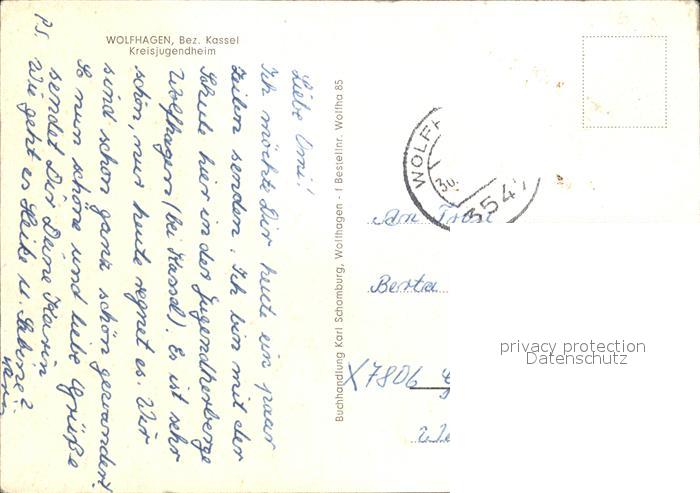 WOLFHAGEN, Bez. Kassel
Kreisjugendheim
Liebe Omi!
Ich möchte Dir heute ein paar
Zeilen senden. Ich bin mit der
Schule hier in der Jugendherberge
Wolfhagen (bei Kassel). Es ist sehr
schön, nur heute regnet es. Wir
sind schon ganz schön gewandert.
So nun schöne und liebe Grüße
sendet Dir Deine Karin
PS. Wie geht es Heike u. Sabine?
Buchhandlung Karl Schomburg, Wolfhagen - f Bestellnr. Wolfha 85
WOLFH
30.
3547
An Frau
Berta
X7806
privacy protection
Datenschutz